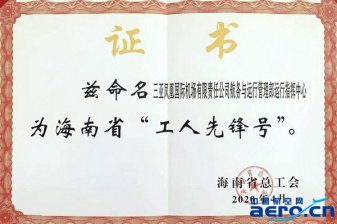 证书
兹命名三亚凤凰国际机场有限责任公司航务与运行管理部运行指挥中心
为海南省“工人先锋号”。
海南省总工会
2020年4月
中国航空网
aero.cn